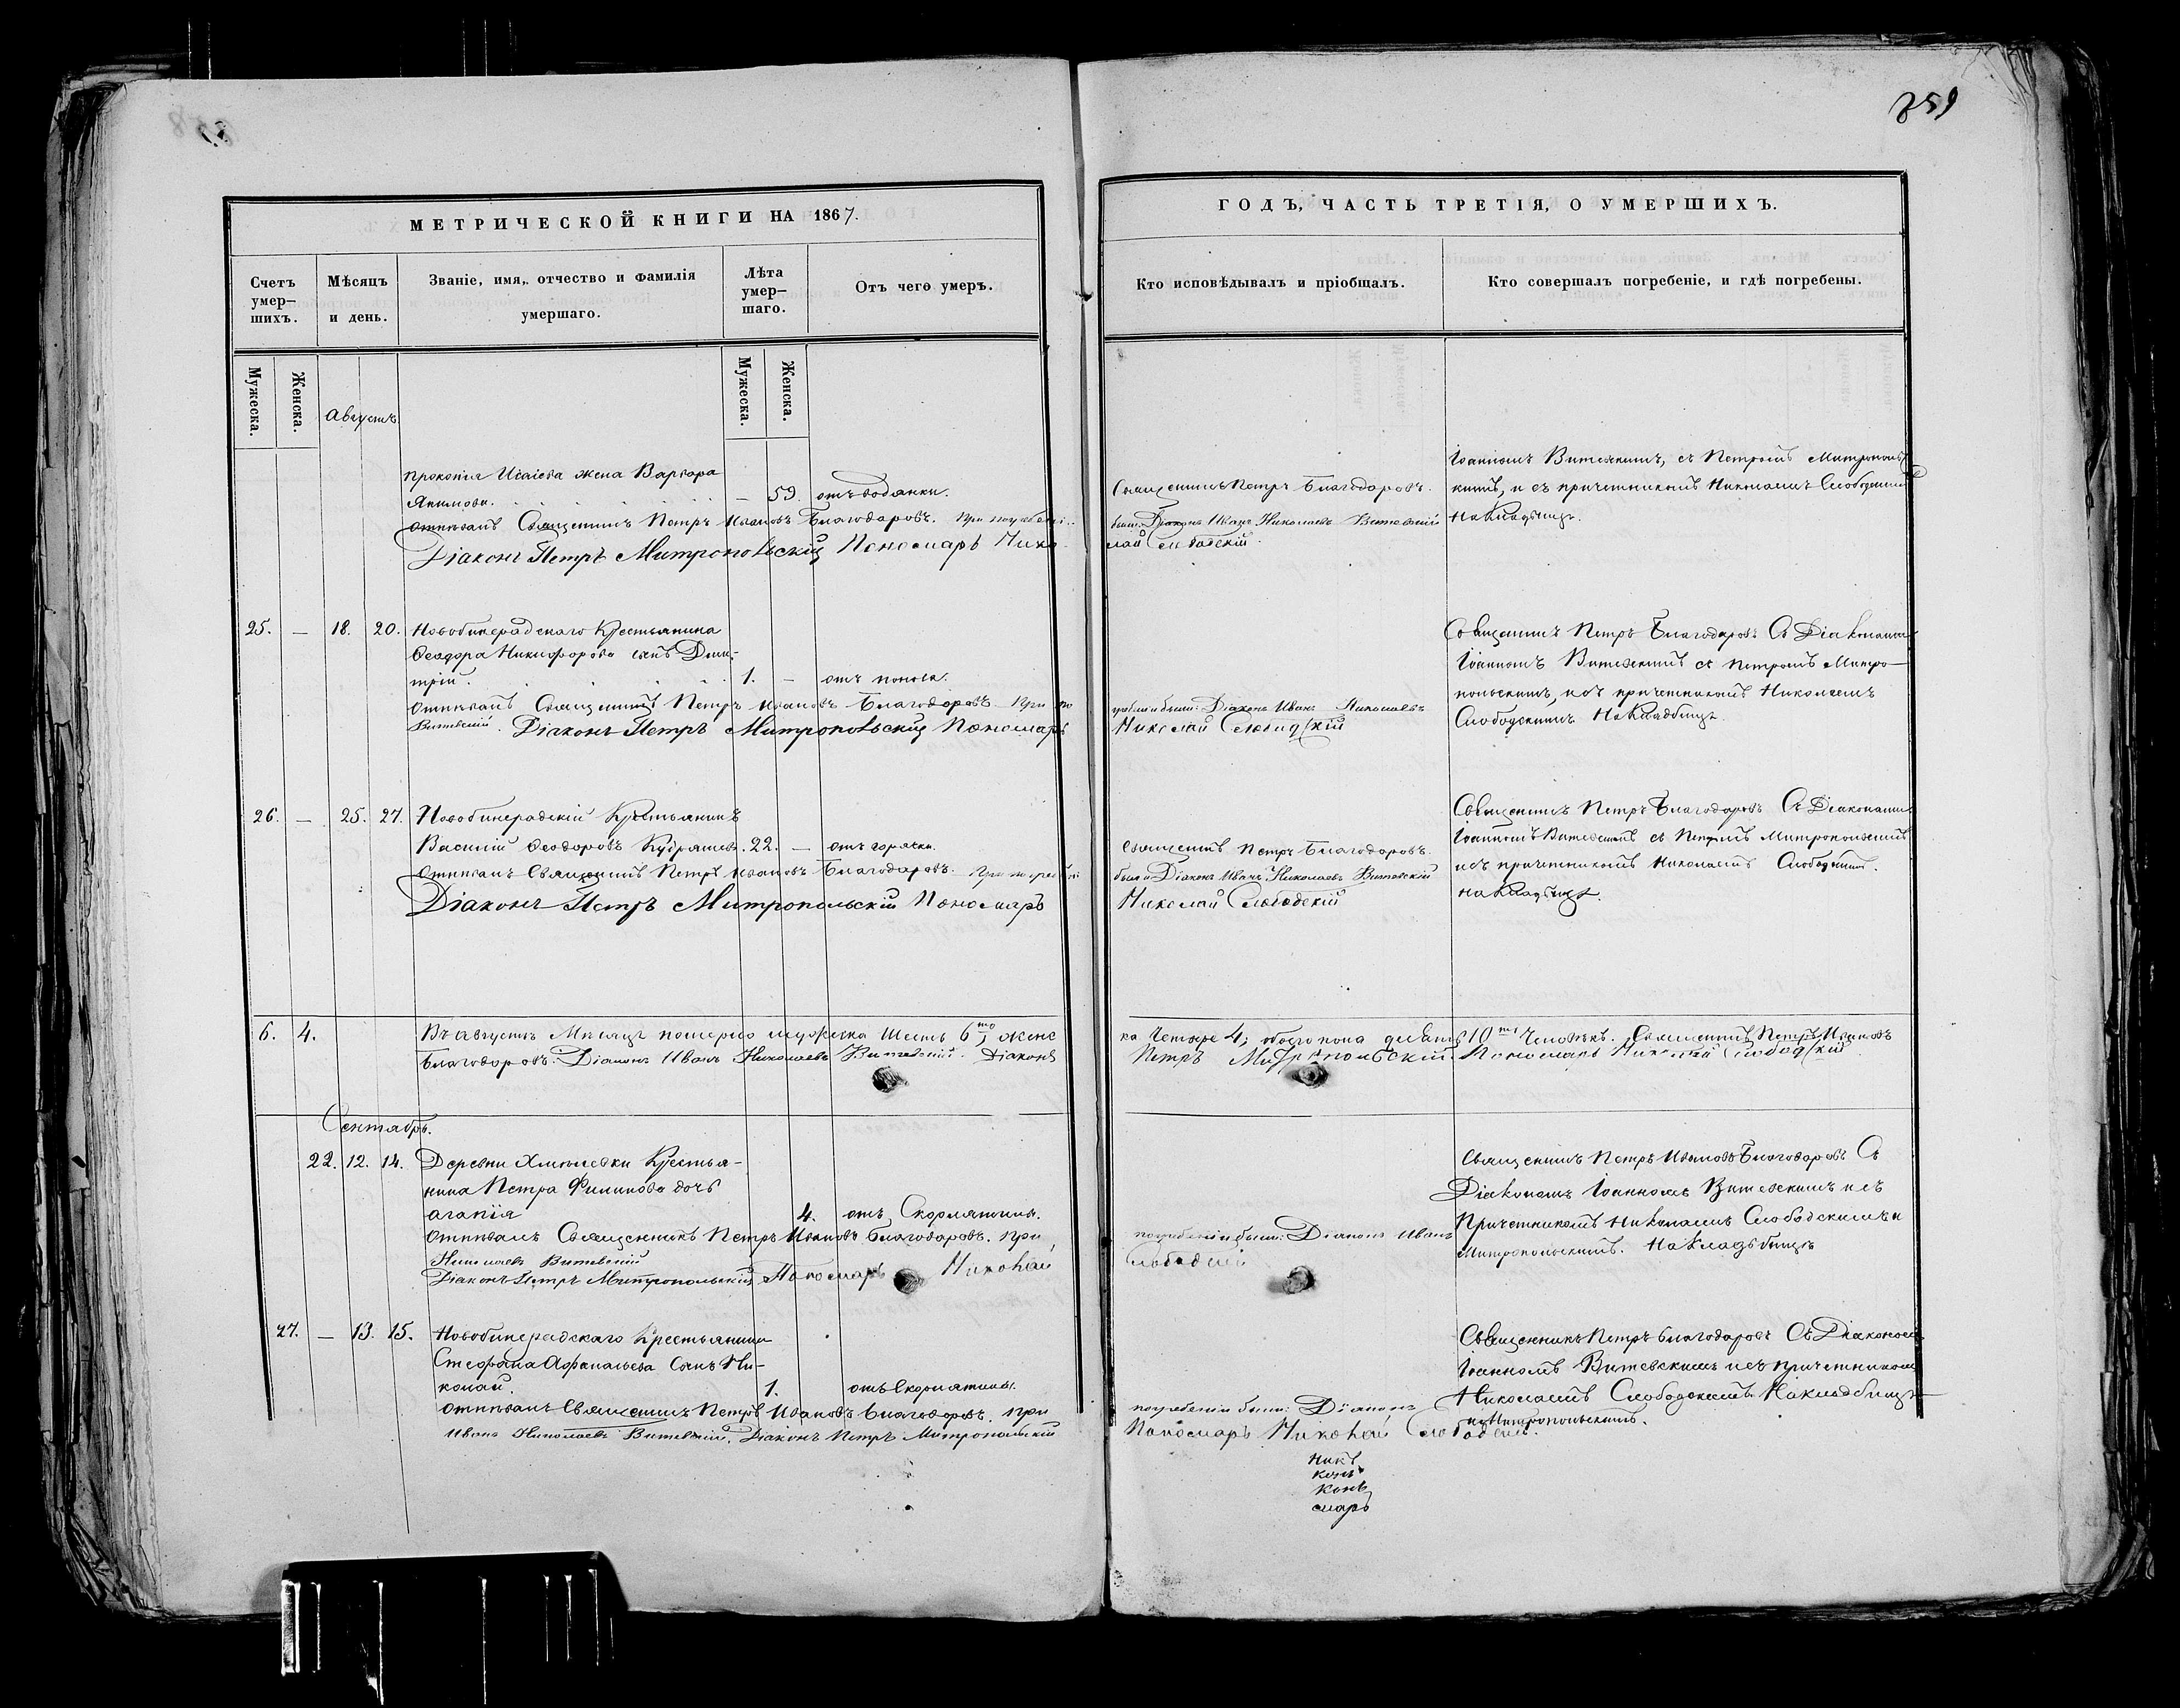 859
МЕТРИЧЕСКОЙ КНИГИ НА 1867.
Счетъ умер-шихъ.
Мѣсяцъ и день.
Званіе, имя, отчество и фамилія умершаго.
Лѣта умер-шаго.
Отъ чего умеръ.
Мужеска.
Женска.
Мужеска.
Женска.
Августъ
Прокопія Исаіева жена Варвара
Якимова. — 59. отъ водянки.
Отпѣвалъ Священникъ Петръ Ивановъ Благодаровъ. При погребені
Діаконъ Петръ Митропольскій Пономарь Нико
25. — 18. 20. Новобинерадскаго Крестьянина
Ѳеодора Никифорова сынъ Дми-
трій. 1. — отъ поноса.
Отпѣвалъ Священникъ Петръ Ивановъ Благодаровъ При по
Витевскій. Діаконъ Петръ Митропольскій Пономарь
26. — 25. 27. Новобинерадскій Крестьянинъ
Василій Ѳеодоровъ Кудряшев. 22. — отъ горячки.
Отпѣвалъ Священникъ Петръ Ивановъ Благодаровъ. При погребені
Діаконъ Петръ Митропольскій Пономарь
6. 4. Въ Августѣ Мѣсяцѣ померло мужеска Шесть 6то, женс
Благодаровъ. Діаконъ Иванъ Николаевъ Витевскій. Діаконъ
Сентябрь.
22. 12. 14. Деревни Хмѣлевки Крестья-
нина Петра Филипова дочь
Агапія 4. отъ Скорлятины.
Отпѣвалъ Священникъ Петръ Ивановъ Благодаровъ. При
Николаевъ Витевскій
Діаконъ Петръ Митропольскій Пономарь Николай
27. — 13. 15. Новобинерадскаго Крестьянина
Стефана Афанасьева Сынъ Ни-
колай. 1. отъ Скорлятины.
Отпѣвалъ Священникъ Петръ Ивановъ Благодаровъ. При
Иванъ Николаевъ Витевскій. Діаконъ Петръ Митропольскій
ГОДЪ, ЧАСТЬ ТРЕТІЯ, О УМЕРШИХЪ.
Кто исповѣдывалъ и пріобщалъ.
Кто совершалъ погребеніе, и гдѣ погребены.
Іоанномъ Витевскимъ, съ Петромъ Митрополь
Священникъ Петръ Благодаровъ. кимъ, и съ причетникомъ Николаемъ Слободским
были: Діаконъ Иванъ Николаевъ Витевскій На Кладбищѣ.
лай Слободскій.
Священникъ Петръ Благодаровъ Съ Діаконами
Іоанномъ Витевскимъ съ Петромъ Митро-
польскимъ, и съ причетникомъ Николаемъ
гребеніи были: Діаконъ Иванъ Николаевъ
Слободскимъ На Кладбищѣ.
Николай Слободскій
Священникъ Петръ Благодаровъ Съ Діаконами
Іоанномъ Витевскимъ съ Петромъ Митропольскимъ
Священникъ Петръ Благодаровъ.
и съ причетникомъ Николаемъ Слободскимъ.
были: Діаконъ Иванъ Николаевъ Витевскій
на Кладбищѣ.
Николай Слободскій
ка Четыре 4; обоего пола 10ть Человѣкъ. Священникъ Петръ Ивановъ
Петръ Митропольскій. Пономарь Николай Слободскій
Священникъ Петръ Ивановъ Благодаровъ Съ
Діакономъ Іоанномъ Витевскимъ и съ
Причетникомъ Николаемъ Слободскимъ и
погребеніи были: Діаконъ Иванъ
Митропольскимъ. На Кладбищѣ
Слободскій
Священникъ Петръ Благодаровъ Съ Діакономъ
Іоанномъ Витевскимъ и съ причетником
Николаемъ Слободскимъ На Кладбищѣ
погребеніи были: Діаконъ
и Митропольскимъ.
Пономарь Николай Слободскій.
никъ
конъ
конъ
марь